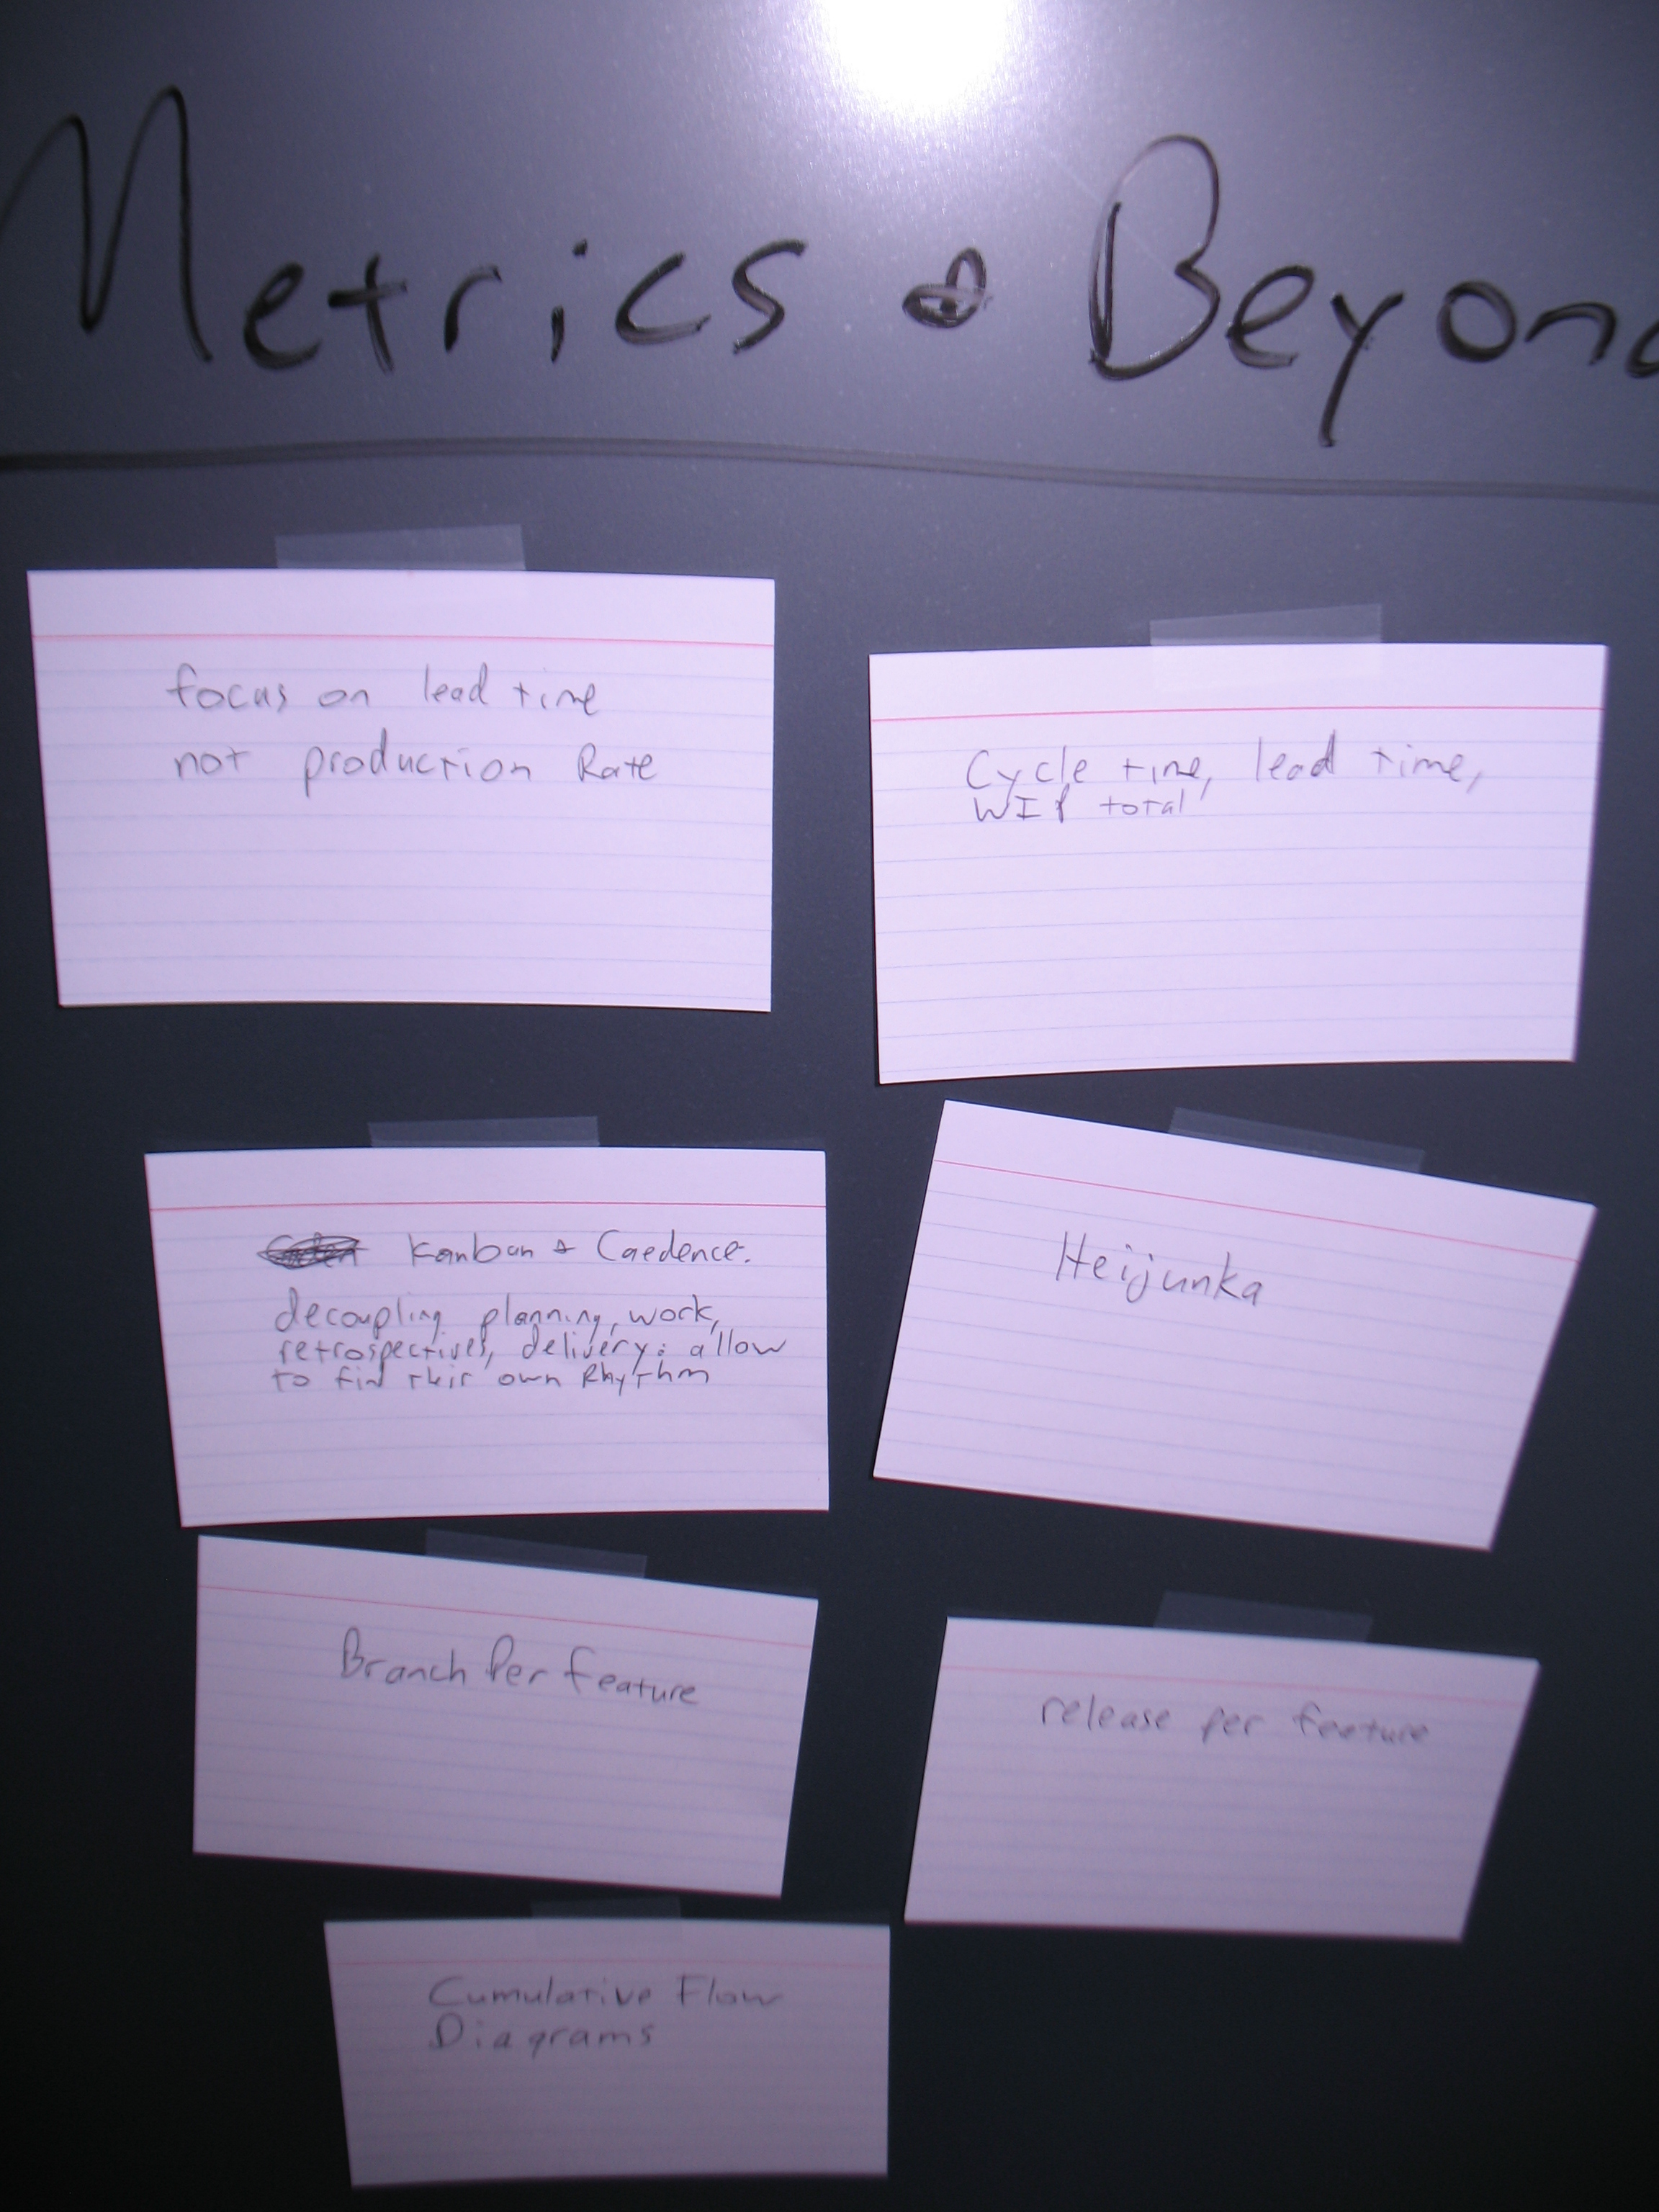 Metrics & Beyond
focus on lead time
not production Rate
Cycle time, lead time,
WIP total
Kanban & Caedence.
decoupling planning, work,
retrospectives, delivery: allow
to find their own Rhythm
Heijunka
Branch Per feature
release per feature
Cumulative Flow
Diagrams